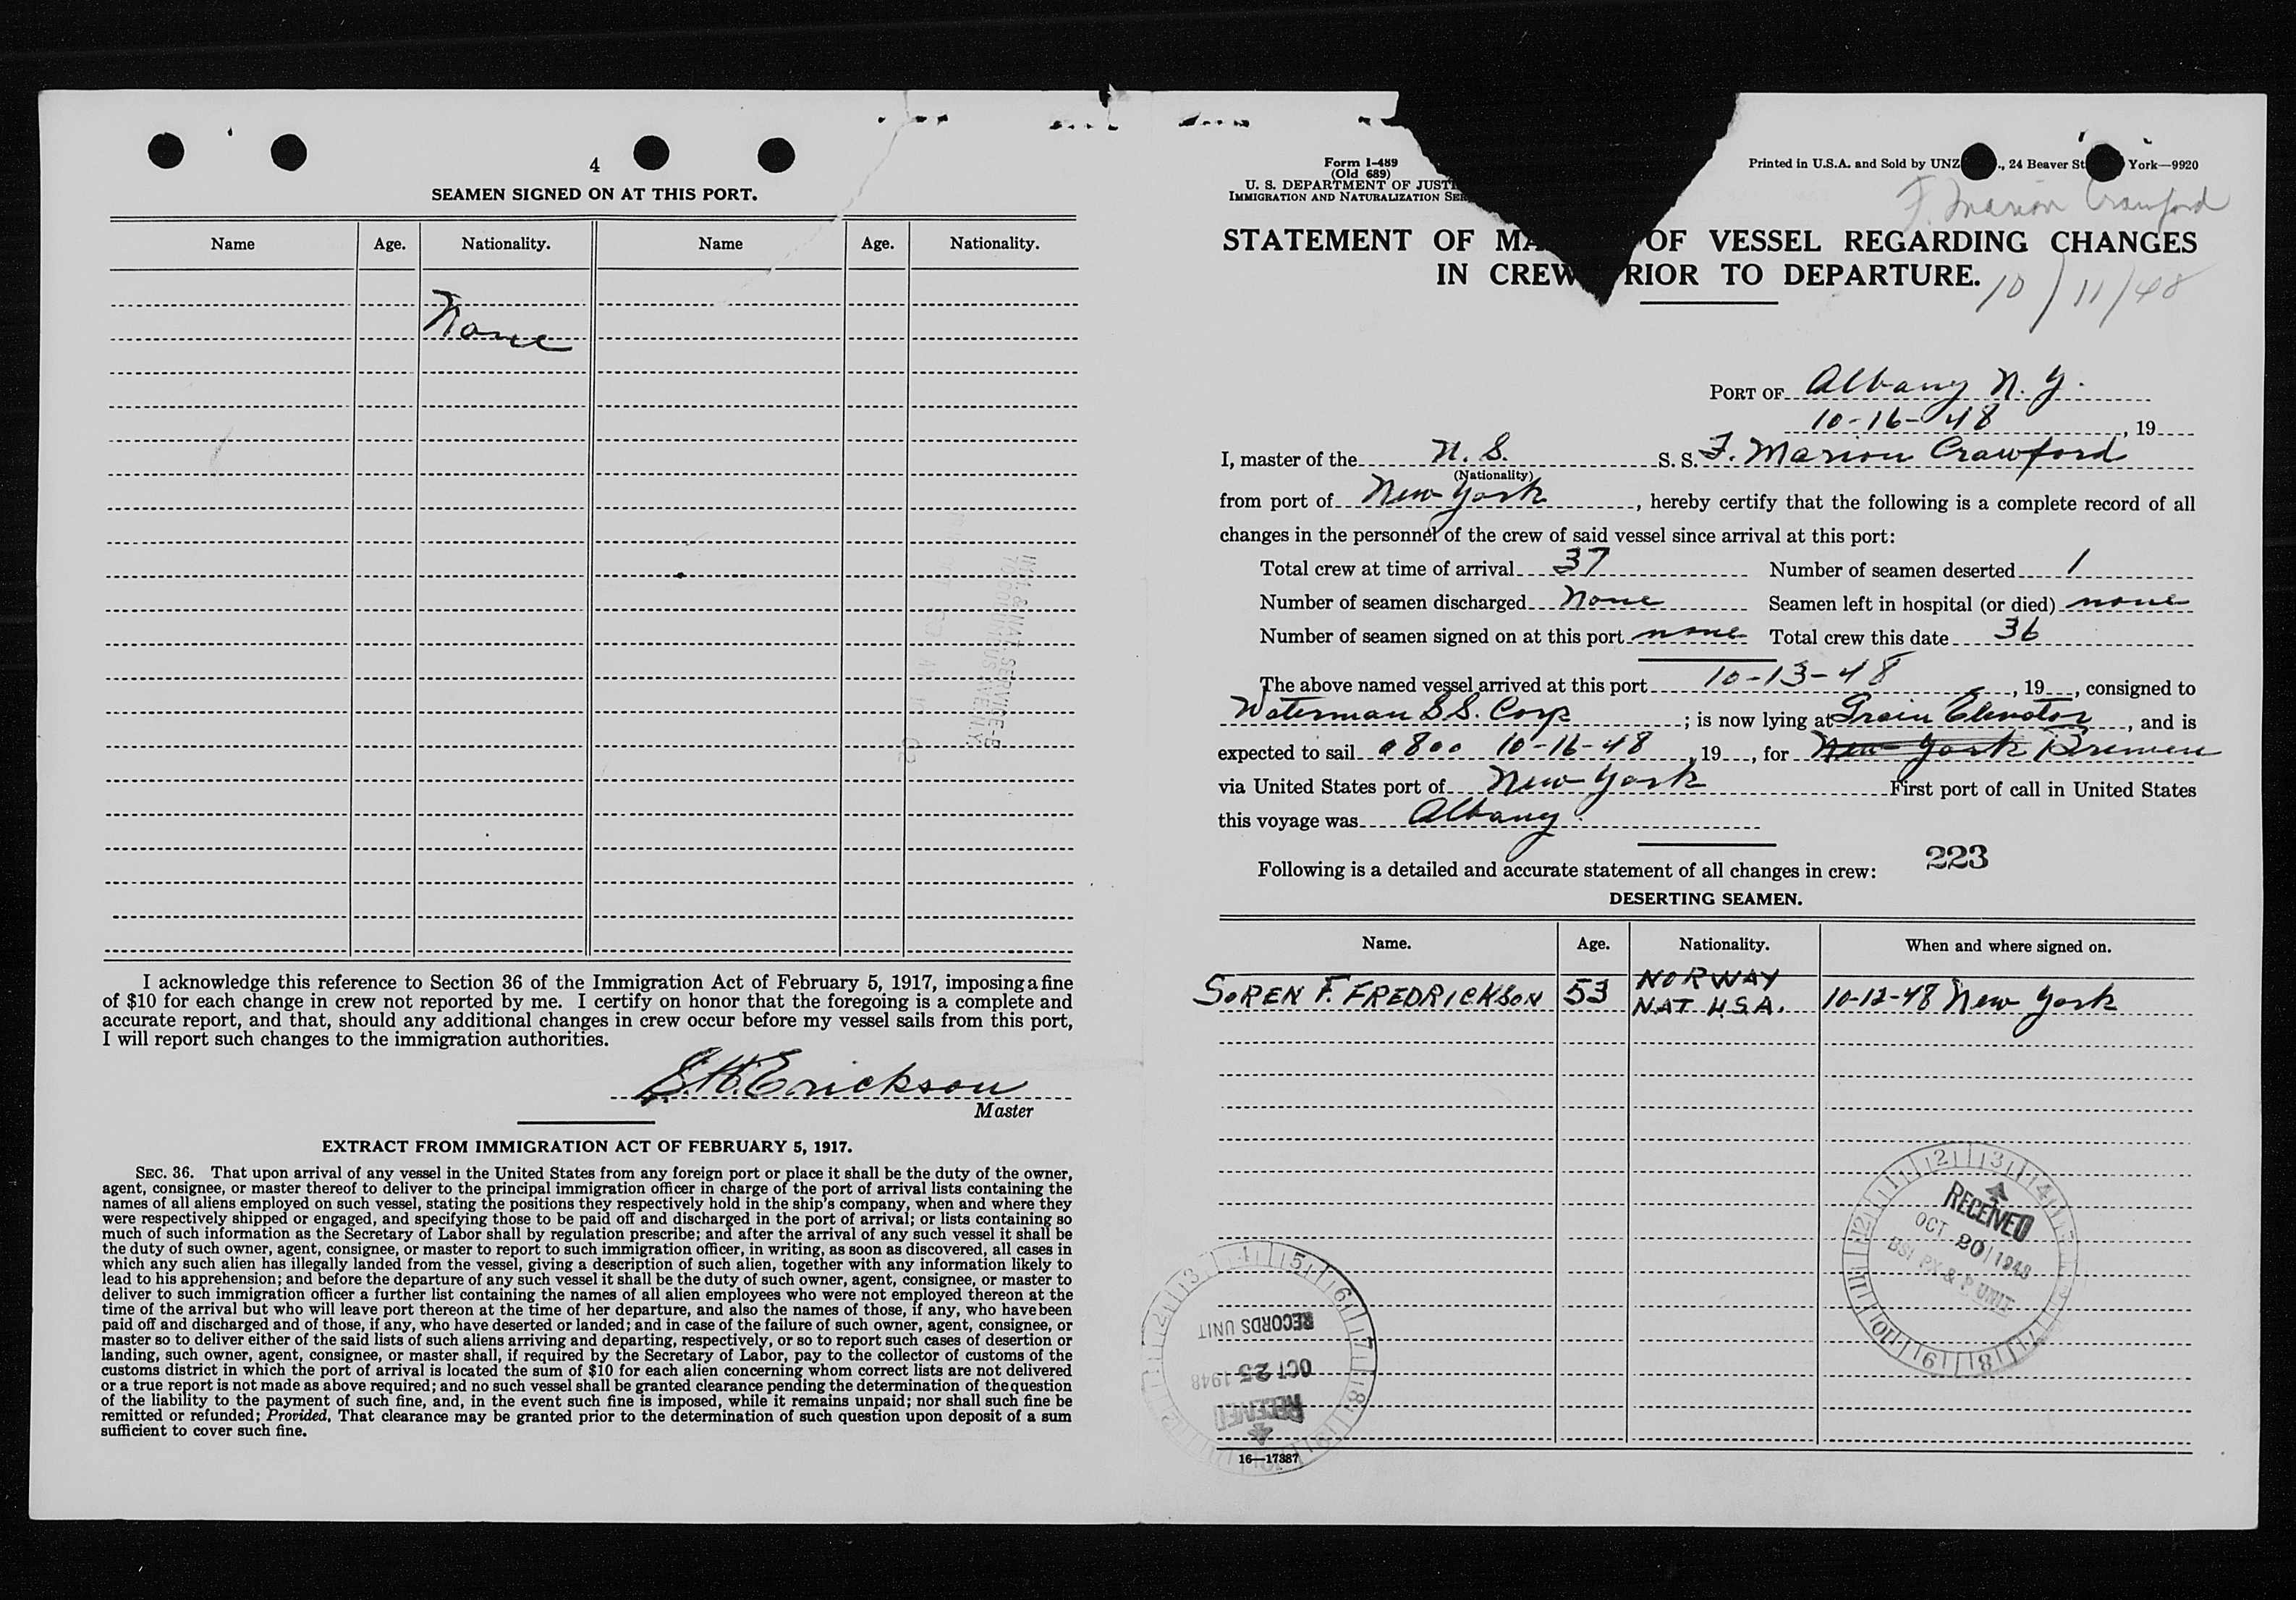 4
SEAMEN SIGNED ON AT THIS PORT.
Name Age. Nationality. Name Age. Nationality.
None
I acknowledge this reference to Section 36 of the Immigration Act of February 5, 1917, imposing a fine
of $10 for each change in crew not reported by me. I certify on honor that the foregoing is a complete and
accurate report, and that, should any additional changes in crew occur before my vessel sails from this port,
I will report such changes to the immigration authorities.
E.H. Erickson
Master
EXTRACT FROM IMMIGRATION ACT OF FEBRUARY 5, 1917.
SEC. 36. That upon arrival of any vessel in the United States from any foreign port or place it shall be the duty of the owner,
agent, consignee, or master thereof to deliver to the principal immigration officer in charge of the port of arrival lists containing the
names of all aliens employed on such vessel, stating the positions they respectively hold in the ship's company, when and where they
were respectively shipped or engaged, and specifying those to be paid off and discharged in the port of arrival; or lists containing so
much of such information as the Secretary of Labor shall by regulation prescribe; and after the arrival of any such vessel it shall be
the duty of such owner, agent, consignee, or master to report to such immigration officer, in writing, as soon as discovered, all cases in
which any such alien has illegally landed from the vessel, giving a description of such alien, together with any information likely to
lead to his apprehension; and before the departure of any such vessel it shall be the duty of such owner, agent, consignee, or master to
deliver to such immigration officer a further list containing the names of all alien employees who were not employed thereon at the
time of the arrival but who will leave port thereon at the time of her departure, and also the names of those, if any, who have been
paid off and discharged and of those, if any, who have deserted or landed; and in case of the failure of such owner, agent, consignee, or
master so to deliver either of the said lists of such aliens arriving and departing, respectively, or so to report such cases of desertion or
landing, such owner, agent, consignee, or master shall, if required by the Secretary of Labor, pay to the collector of customs of the
customs district in which the port of arrival is located the sum of $10 for each alien concerning whom correct lists are not delivered
or a true report is not made as above required; and no such vessel shall be granted clearance pending the determination of the question
of the liability to the payment of such fine, and, in the event such fine is imposed, while it remains unpaid; nor shall such fine be
remitted or refunded; Provided, That clearance may be granted prior to the determination of such question upon deposit of a sum
sufficient to cover such fine.
Form I-489
(Old 689)
U. S. DEPARTMENT OF JUST
IMMIGRATION AND NATURALIZATION SER
Printed in U.S.A. and Sold by UNZ ., 24 Beaver St York—9920
F. Marion Crawford
STATEMENT OF MA OF VESSEL REGARDING CHANGES
IN CREW PRIOR TO DEPARTURE.
10/11/48
PORT OF Albany N. Y.
10-16-48, 19
I, master of the U. S. S. S. F. Marion Crawford
(Nationality)
from port of New York, hereby certify that the following is a complete record of all
changes in the personnel of the crew of said vessel since arrival at this port:
Total crew at time of arrival 37 Number of seamen deserted 1
Number of seamen discharged None Seamen left in hospital (or died) none
Number of seamen signed on at this port none Total crew this date 36
The above named vessel arrived at this port 10-13-48, 19, consigned to
Waterman SS. Corp; is now lying at Grain Elevator, and is
expected to sail 0800 10-16-48, 19, for New York Bremen
via United States port of New York First port of call in United States
this voyage was Albany
Following is a detailed and accurate statement of all changes in crew:
223
DESERTING SEAMEN.
Name. Age. Nationality. When and where signed on.
NORWAY
SOREN F. FREDRICKSON 53 NAT U.S.A. 10-12-48 New York
RECEIVED
OCT 20 1948
BSI PX & P UNIT
RECEIVED
OCT 25 1948
RECORDS UNIT
16—17387